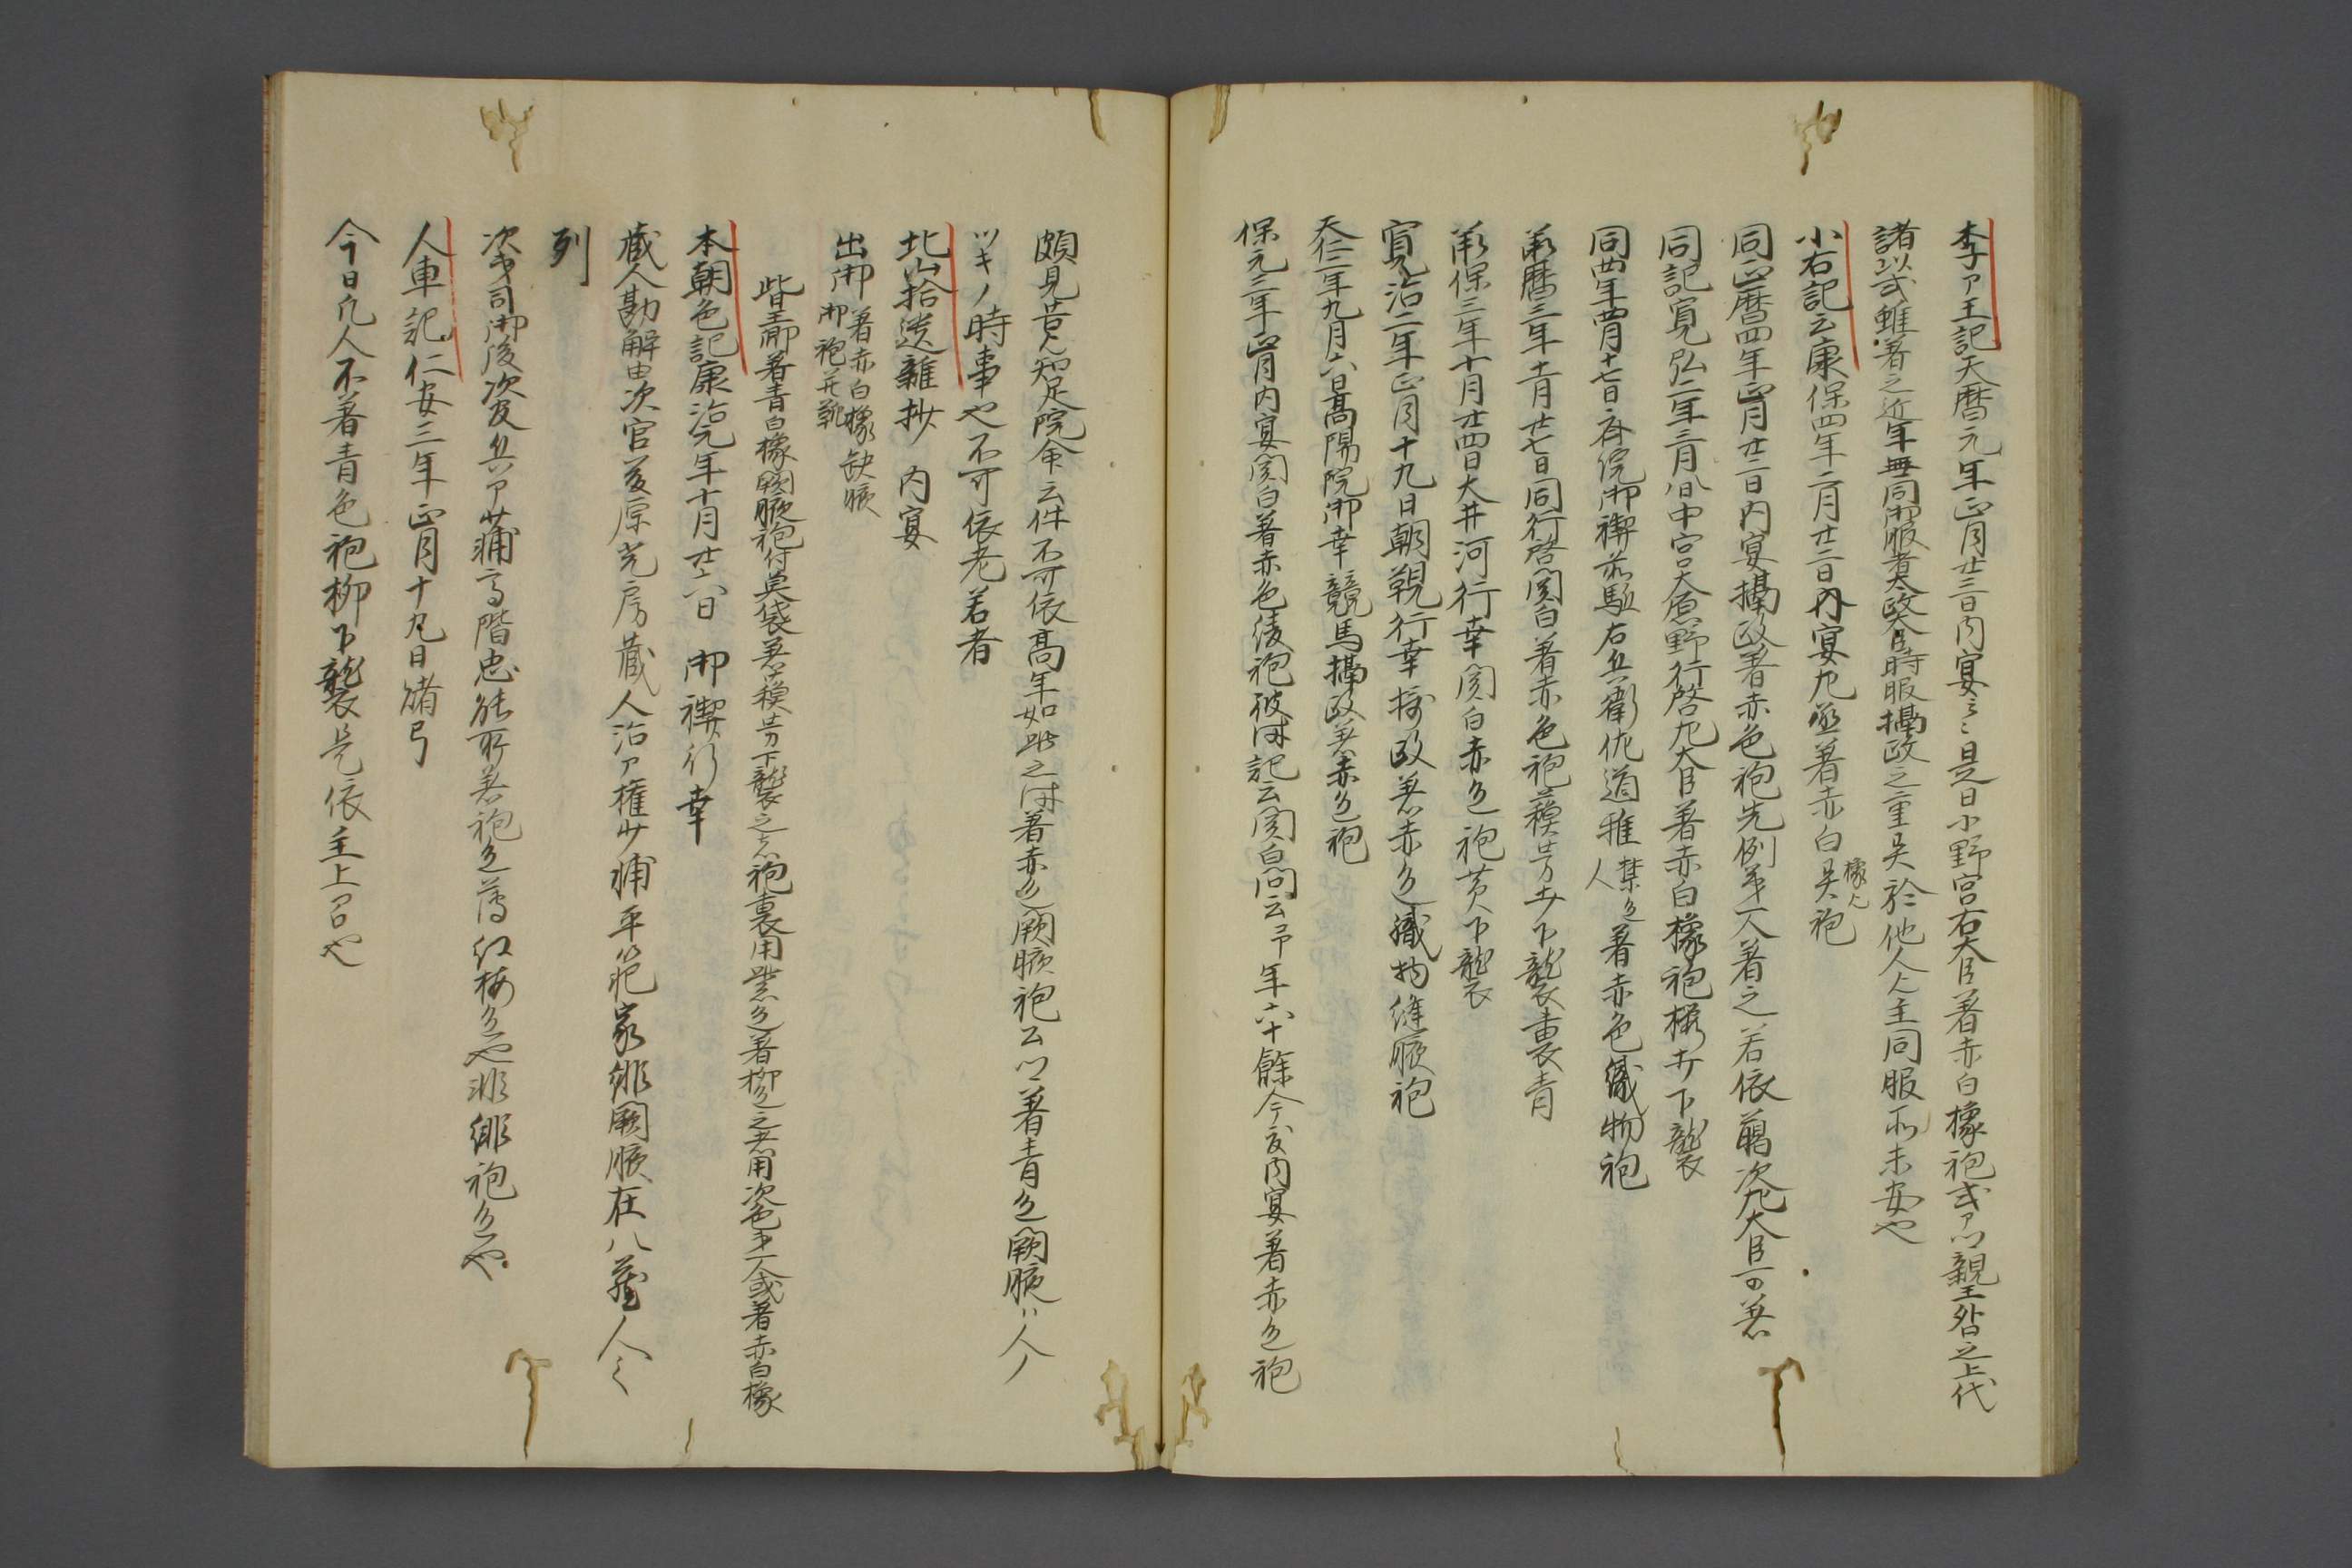 李ア王記天暦元年正月廿三日内宴云々是日小野宮右大臣著赤白橡袍式ア以親王皆之上代
諸以式雖著之近年無同御服者太政大臣時服攝政之重臭於他人人主同服尓未安也
小右記云康保四年二月廿二日内宴九丞著赤白橡欤臭袍
同正暦四年正月廿二日内宴攝政著赤色袍先例第一人著之若依䓟次左大臣可著
同記寛弘二年三月八日中宮大原野行啓左大臣著赤白橡袍桜色下襲
同四年四月十七日斎院御禊前駈右兵衛佐道雅禁色人著赤色織物袍
承暦三年十一月廿七日同行啓関白著赤色袍蘓芳下襲裏青
承保三年十月廿四日大井河行幸関白赤色袍黄下襲
寛治二年正月十九日朝覲行幸摂政著赤色織物縫腋袍
天仁二年九月六日高陽院御幸競馬攝政著赤色袍
保元三年正月内宴関白著赤色綾袍彼時記云関白問云予年六十餘今度内宴著赤色袍
頗見苦知足院命云件不可依高年如此之時著赤色闕腋袍云々著青色闕腋ハ人ノ
ツキノ時事也不可依老若者
北山拾遺雜抄 内宴
出御著赤白橡缺腋御袍并靴
皆王卿著青白橡闕腋袍付魚袋著蘓芳下襲之之袍裏用紫色著柳色之者用次色第一人或著赤白橡
本朝色記康治元年十月廿六日 御禊行幸
蔵人勘解由次官藤原光房蔵人治ア権少輔平範家緋闕腋在八蔵人々
列
次第司御後次官兵ア少輔高階忠能所著袍色薄紅梅色也非緋袍色也
人車記仁安三年正月十九日賭弓
今日凡人不著青色袍柳下襲是依主上召也